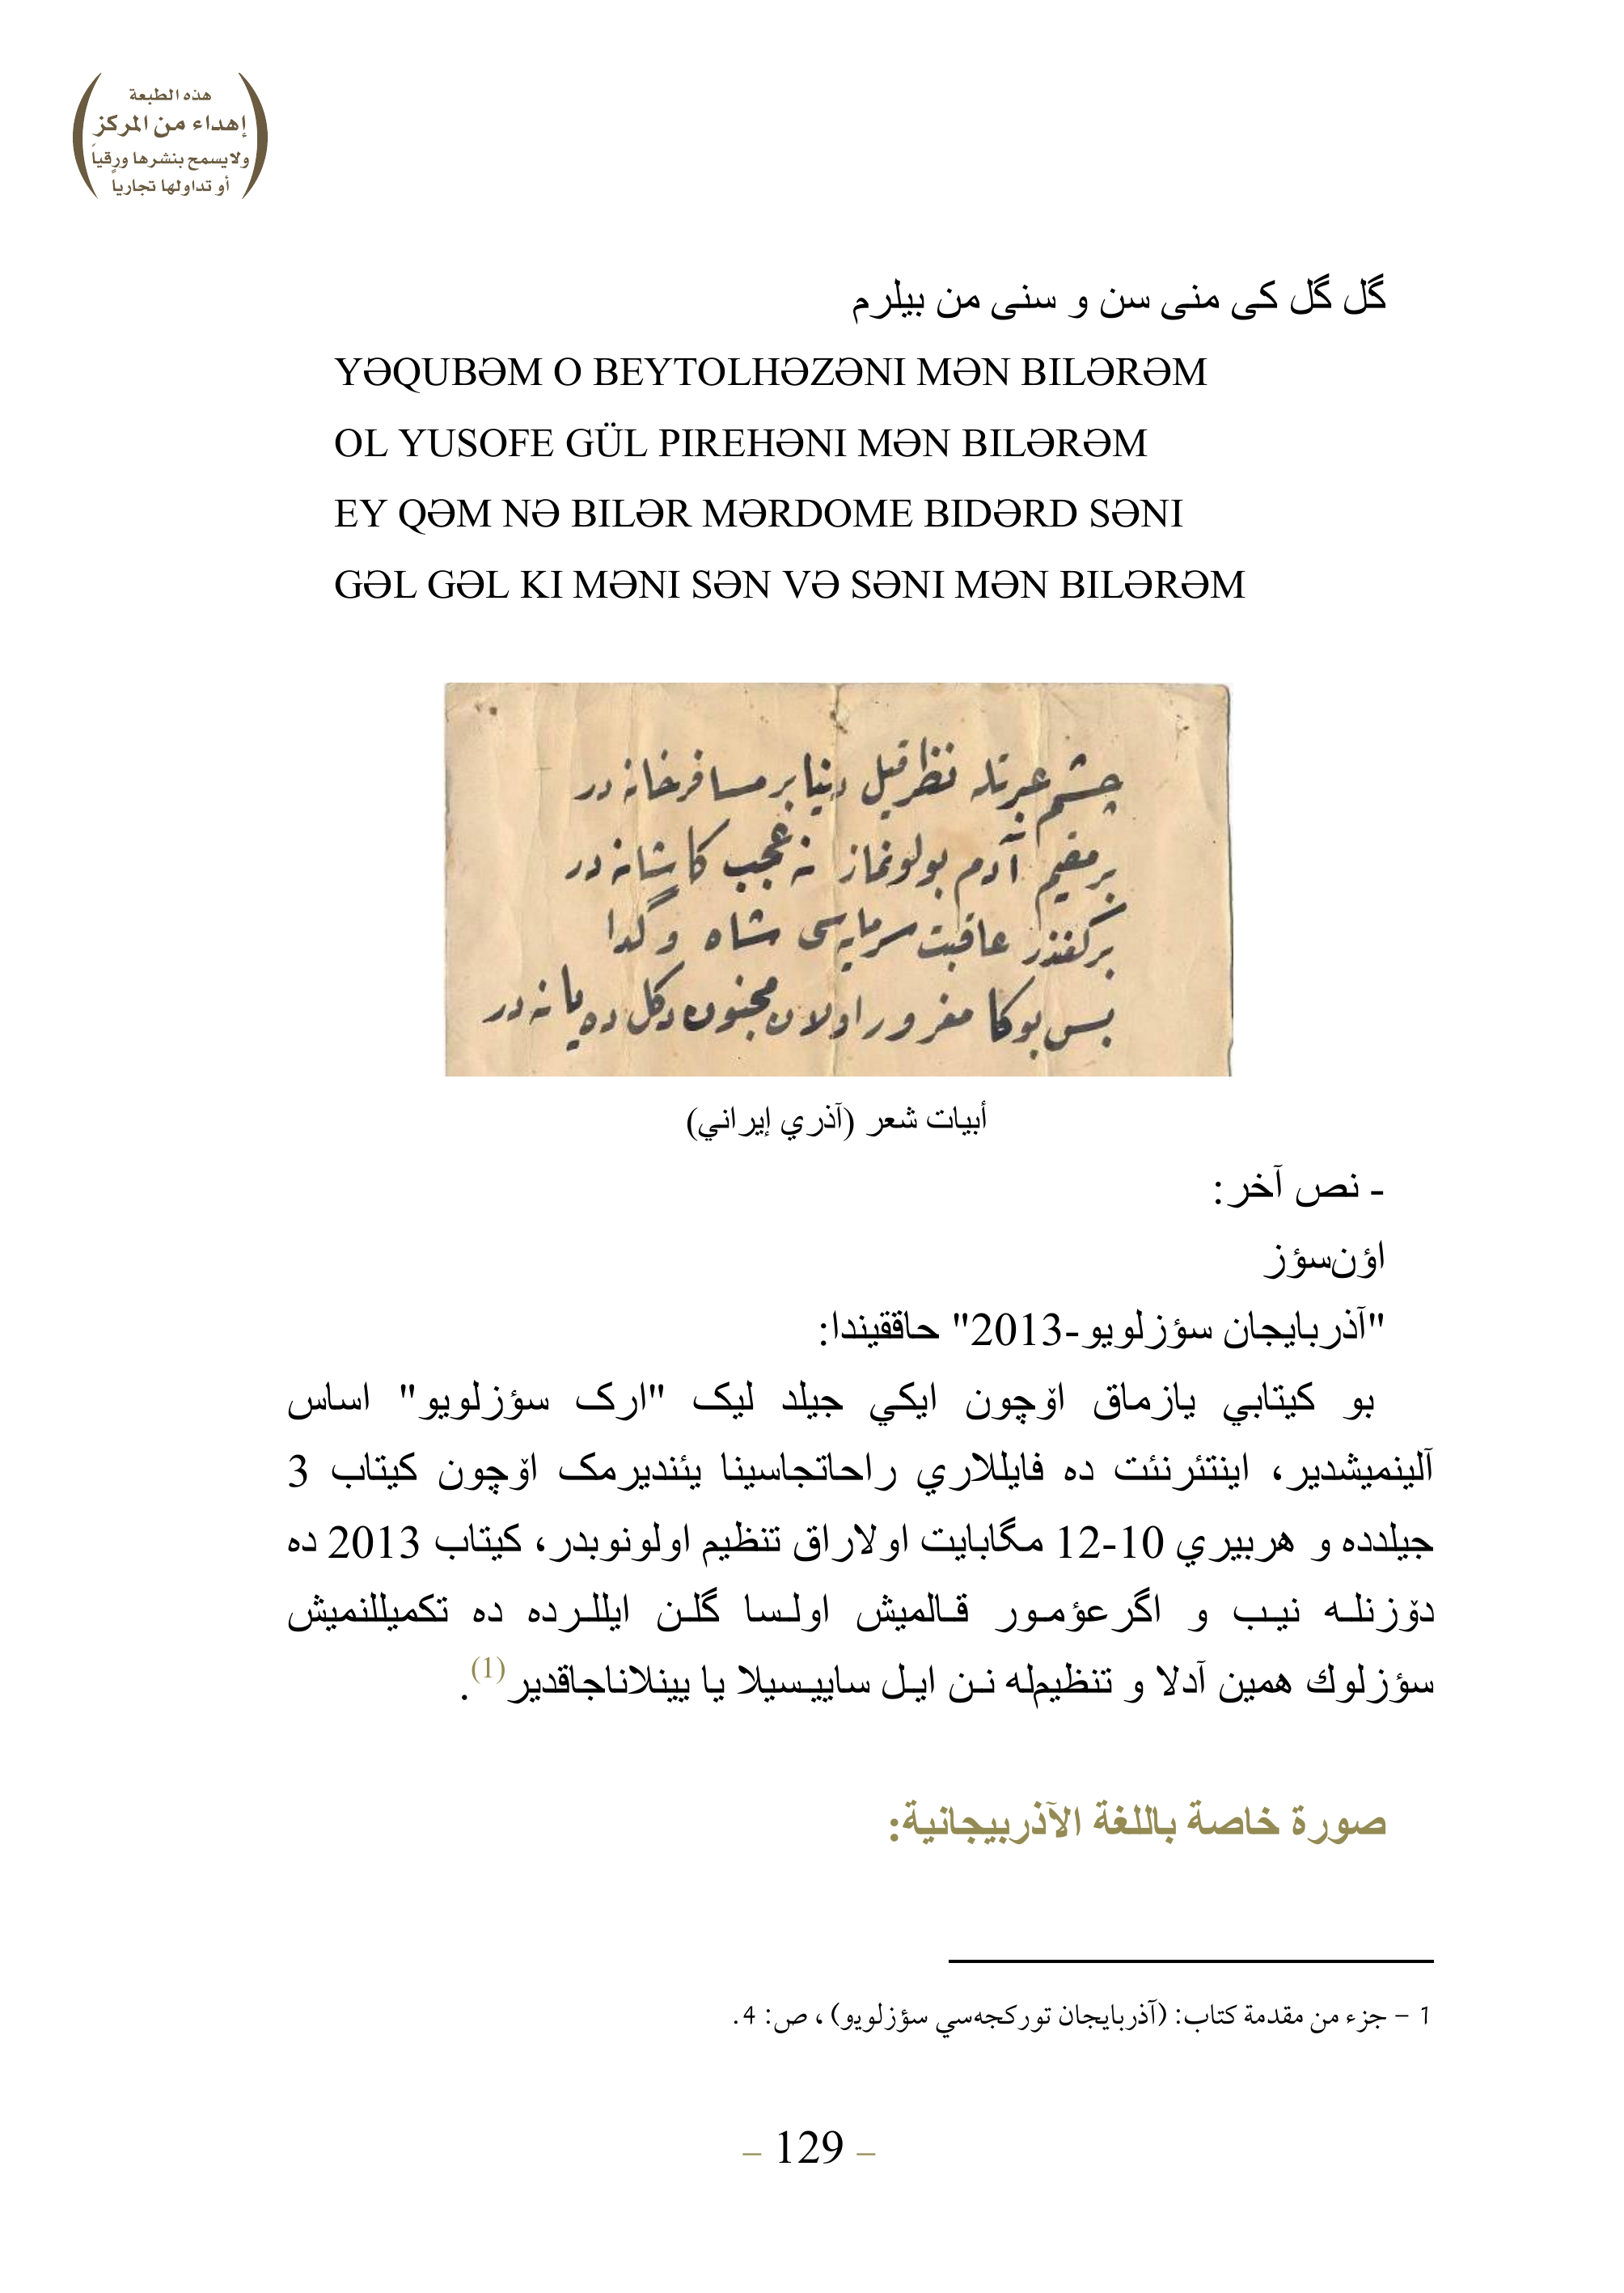 هذه الطبعة
إهداء من المركز
ولايسمح بنشرها ورقياً
أو تداولها تجارياً
گل گل کی منی سن و سنی من بیلرم
YƏQUBƏM O BEYTOLHƏZƏNI MƏN BILƏRƏM
OL YUSOFE GÜL PIREHƏNI MƏN BILƏRƏM
EY QƏM NƏ BILƏR MƏRDOME BIDƏRD SƏNI
GƏL GƏL KI MƏNI SƏN VƏ SƏNI MƏN BILƏRƏM
چشم عبرتله نظر قیل دنیا بر مسافرخانه در
بر مقیم آدم بولونماز نه عجب کاشانه در
بر کفندر عاقبت سرمایه سی شاه و گدا
بس بوکا مغرور اولان مجنون دکل ده یا نه در
أبيات شعر (آذري إيراني)
- نص آخر:
اؤن‌سؤز
"آذربايجان سؤزلويو-2013" حاققيندا:
بو كيتابي يازماق اۆچون ايكي جيلد ليک "ارک سؤزلويو" اساس
آلينميشدير، اينتئرنئت ده فايللاري راحاتجاسينا يئنديرمک اۆچون كيتاب 3
جيلدده و هربيري 10-12 مگابايت اولاراق تنظيم اولونوبدر، كيتاب 2013 ده
دۆزنلـه نيـب و اگرعؤمـور قـالميش اولـسا گلـن ايللـرده ده تكميللنميش
سؤزلوك همين آدلا و تنظيم‌له نـن ايـل ساييـسيلا يا ييينلاناجاقدير (1).
صورة خاصة باللغة الآذربيجانية:
1 – جزء من مقدمة كتاب: (آذربايجان توركجه‌سي سؤزلويو) ، ص: 4.
– 129 –